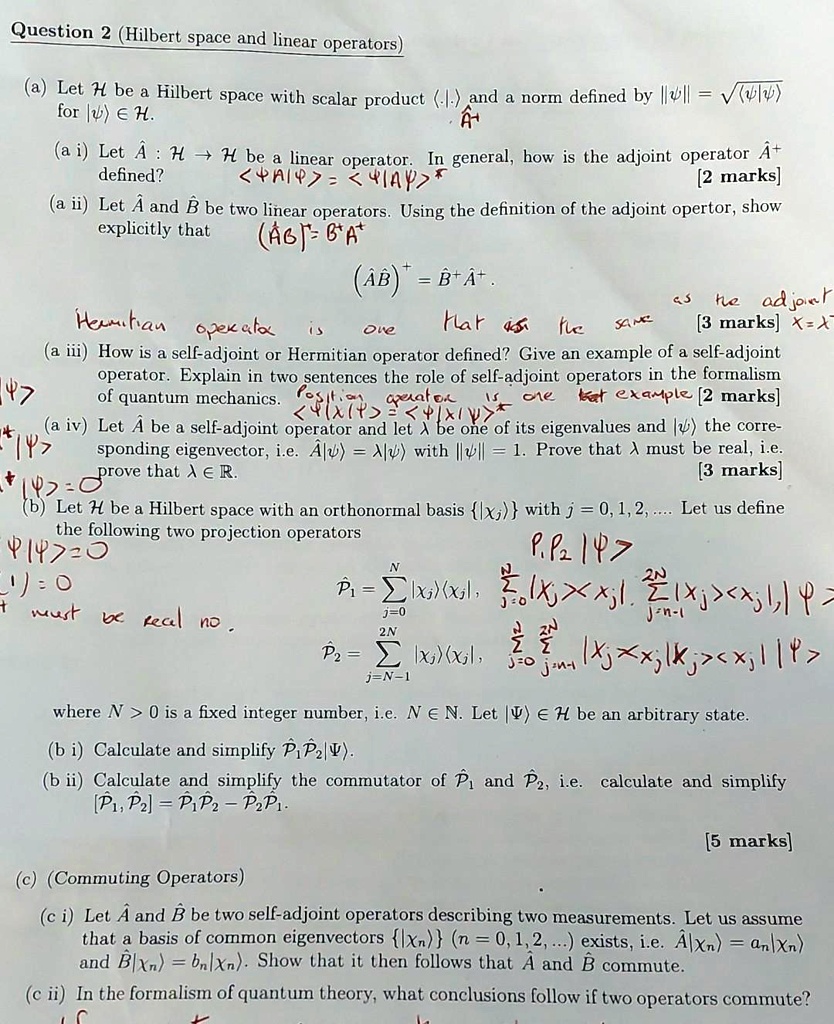 Question 2 (Hilbert space and linear operators)
(a) Let ℋ be a Hilbert space with scalar product ⟨.|.⟩ and a norm defined by ||ψ|| = √⟨ψ|ψ⟩
for |ψ⟩ ∈ ℋ.
Â+
(a i) Let Â : ℋ → ℋ be a linear operator. In general, how is the adjoint operator Â⁺
defined? [2 marks]
<ΨA|Ψ> = <Ψ|AΨ>*
(a ii) Let Â and B̂ be two linear operators. Using the definition of the adjoint opertor, show
explicitly that
(AB)⁺ = B⁺A⁺
(ÂB̂)⁺ = B̂⁺Â⁺ .
Hermitian operator is one that is the same as the adjoint
[3 marks] x=x
(a iii) How is a self-adjoint or Hermitian operator defined? Give an example of a self-adjoint
operator. Explain in two sentences the role of self-adjoint operators in the formalism
of quantum mechanics. [2 marks]
Position operator is one example
<Ψ|x|Ψ> = <Ψ|x|Ψ>*
(a iv) Let Â be a self-adjoint operator and let λ be one of its eigenvalues and |ψ⟩ the corre-
sponding eigenvector, i.e. Â|ψ⟩ = λ|ψ⟩ with ||ψ|| = 1. Prove that λ must be real, i.e.
prove that λ ∈ ℝ. [3 marks]
Ψ>
*|Ψ>
*|Ψ>=0
Ψ|Ψ>=0
1)=0
must be real no.
(b) Let ℋ be a Hilbert space with an orthonormal basis {|χj⟩} with j = 0, 1, 2, .... Let us define
the following two projection operators
P₁P₂|Ψ>
P̂₁ = Σ_{j=0}^{N} |χj⟩⟨χj|,
Σ_{j=0}^{N} |xj><xj|. Σ_{j=n-1}^{2N} |xj><xj|,|Ψ>
P̂₂ = Σ_{j=N−1}^{2N} |χj⟩⟨χj|,
Σ_{j=0}^{N} Σ_{j=n-1}^{2N} |xj><xj|xj><xj||Ψ>
where N > 0 is a fixed integer number, i.e. N ∈ ℕ. Let |Ψ⟩ ∈ ℋ be an arbitrary state.
(b i) Calculate and simplify P̂₁P̂₂|Ψ⟩.
(b ii) Calculate and simplify the commutator of P̂₁ and P̂₂, i.e. calculate and simplify
[P̂₁, P̂₂] = P̂₁P̂₂ − P̂₂P̂₁.
[5 marks]
(c) (Commuting Operators)
(c i) Let Â and B̂ be two self-adjoint operators describing two measurements. Let us assume
that a basis of common eigenvectors {|χn⟩} (n = 0, 1, 2, ...) exists, i.e. Â|χn⟩ = an|χn⟩
and B̂|χn⟩ = bn|χn⟩. Show that it then follows that Â and B̂ commute.
(c ii) In the formalism of quantum theory, what conclusions follow if two operators commute?